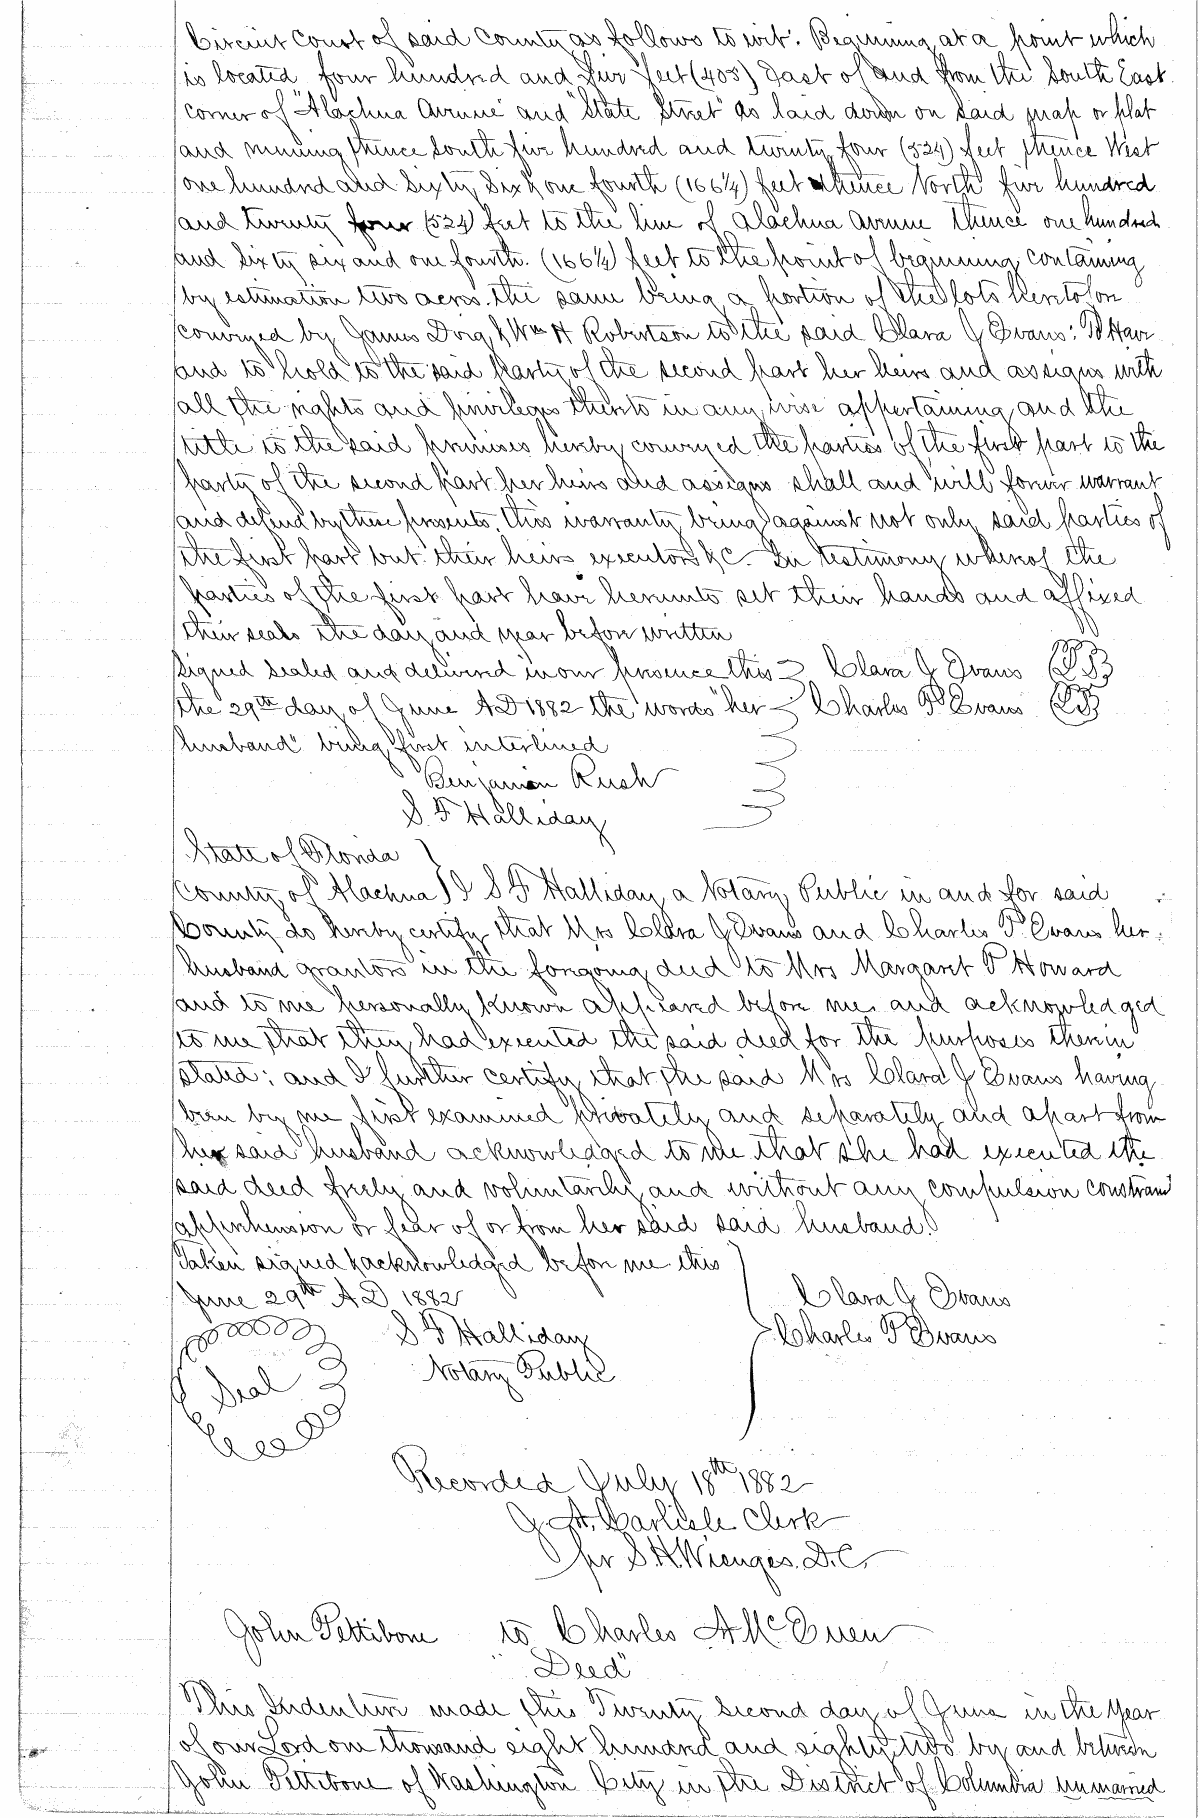 Circuit Court of said County as follows to wit. Beginning at a point which
is located four hundred and five feet (405) East of and from the South East
corner of "Alachua Avenue" and "State Street" as laid down on said map or plat
and running thence South five hundred and twenty four (524) feet thence West
one hundred and Sixty Six & one fourth (166¼) feet thence North five hundred
and twenty four (524) feet to the line of Alachua Avenue thence one hundred
and Sixty six and one fourth. (166¼) feet to the point of beginning containing
by estimation two acres. the same being a portion of the lots heretofore
conveyed by James Doig & Wm H Robertson to the said Clara J Evans: To Have
and to hold to the said Party of the second part her heirs and assigns with
all the rights and privileges thereto in any wise appertaining and the
title to the said premises hereby conveyed the parties of the first part to the
party of the second part her heirs and assigns shall and will forever warrant
and defend by these presents, this warranty being against not only said parties of
the first part but their heirs executors &c. In testimony whereof the
parties of the first part have hereunto set their hands and affixed
their seals the day and year before written
Signed sealed and delivered in our presence this Clara J Evans (L.S.)
the 29th day of June AD 1882 the words "her Charles P. Evans (L.S.)
husband" being first interlined
Benjamin Rush
S. F Halliday
State of Florida
County of Alachua } I S F Halliday a Notary Public in and for said
County do hereby certify that Mrs Clara J Evans and Charles P. Evans her
husband grantors in the foregoing deed to Mrs Margaret P Howard
and to me personally known appeared before me and acknowledged
to me that they had executed the said deed for the purposes therein
stated: and I further certify that the said Mrs Clara J Evans having
been by me first examined privately and separately and apart from
her said husband acknowledged to me that she had executed the
said deed freely and voluntarily and without any compulsion constraint
apprehension or fear of or from her said said husband.
Taken signed & acknowledged before me this
June 29th AD 1882 Clara J Evans
S F Halliday Charles P Evans
Notary Public
Seal
Recorded July 18th 1882
J. A. Carlisle Clerk
per S. H. Wienges. D.C.
John Pettibone to Charles A McEuen
"Deed"
This Indenture made this Twenty Second day of June in the Year
of our Lord one thousand eight hundred and eighty two by and between
John Pettibone of Washington City in the District of Columbia unmarried